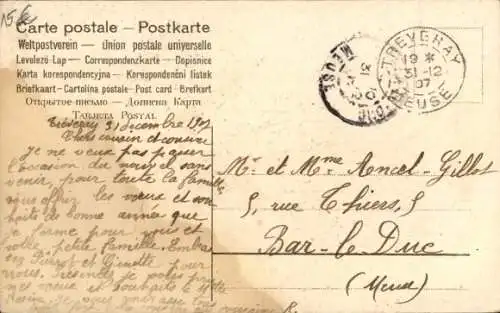 15€
Carte postale – Postkarte
Weltpostverein – Union postale universelle
Levelező-Lap – Correspondenzkarte – Dopisnice
Karta korespondencyjna – Korespondenéni listek
Briefkaart – Cartolina postale – Post card – Brefkort
Открытое письмо – Дописна Карта
Tarjeta Postal
TREVERAY
19 *
31-12
07
MEUSE
MEUSE
31
Tréveray 31 décembre 1907
Chers cousin et cousine
Je ne veux pas passer
l'occasion du nouvel an sans
venir, pour toute la famille
vous offrir les vœux et sou
haits de bonne année que
je forme pour vous et
votre petite famille. Embra
ssez Pierrot et Ginette pour
nous.
mes vœux et souhaits à
Mr et Mme Ancel-Gillot
5, rue Thiers, 5
Bar-le-Duc
(Meuse)